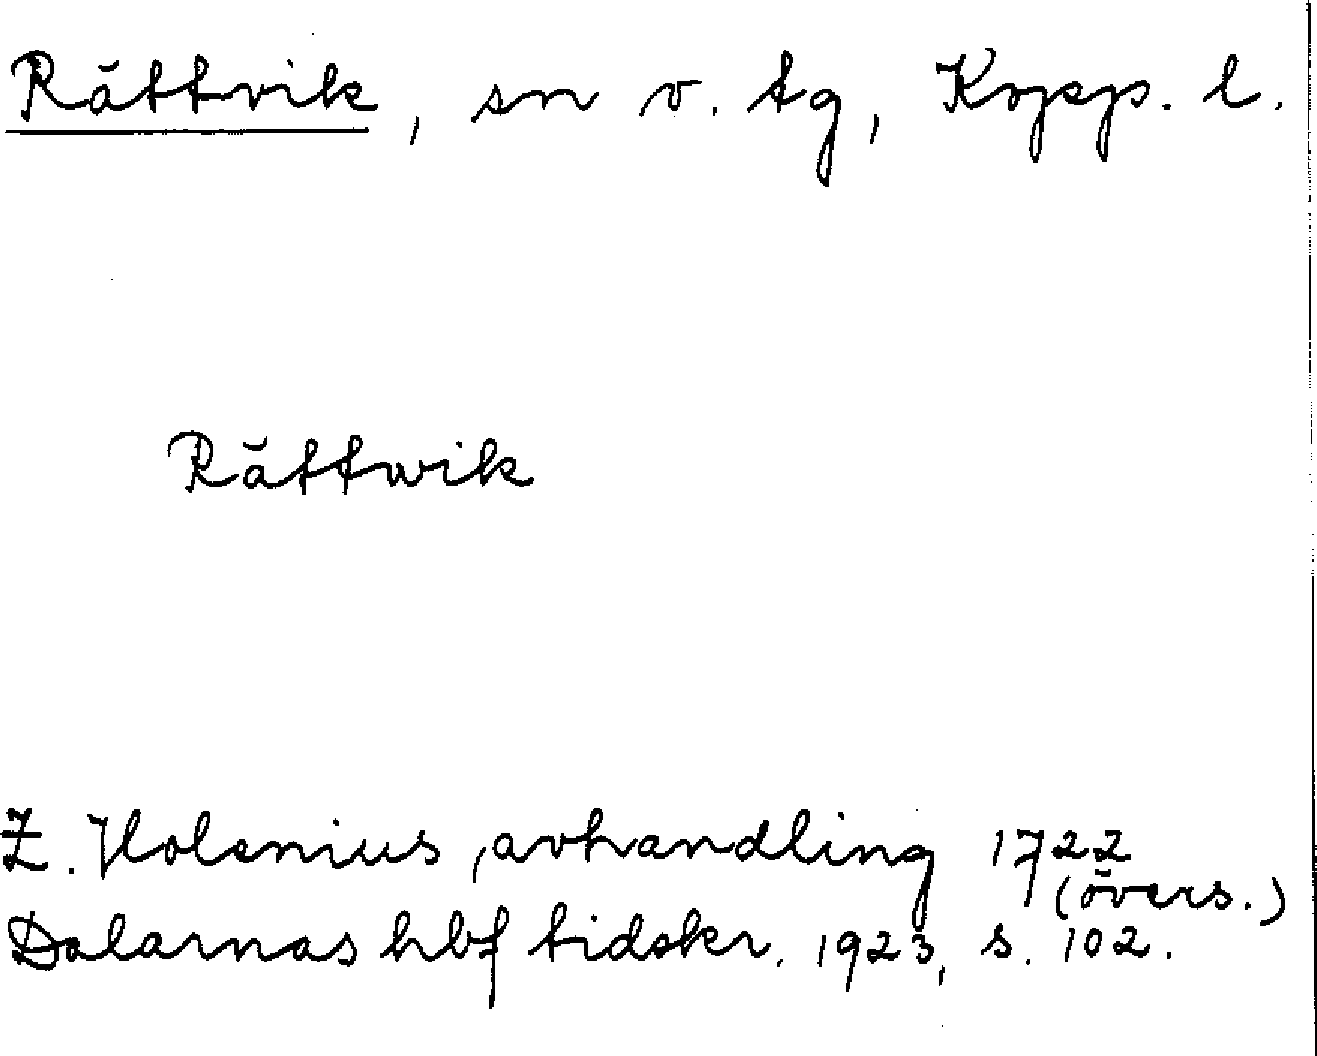 Rättvik, sn v. tg, Kopp. l.
Rättwik
Z. Holenius, avhandling 1722
(övers.)
Dalarnas hbf tidskr. 1923, s. 102.